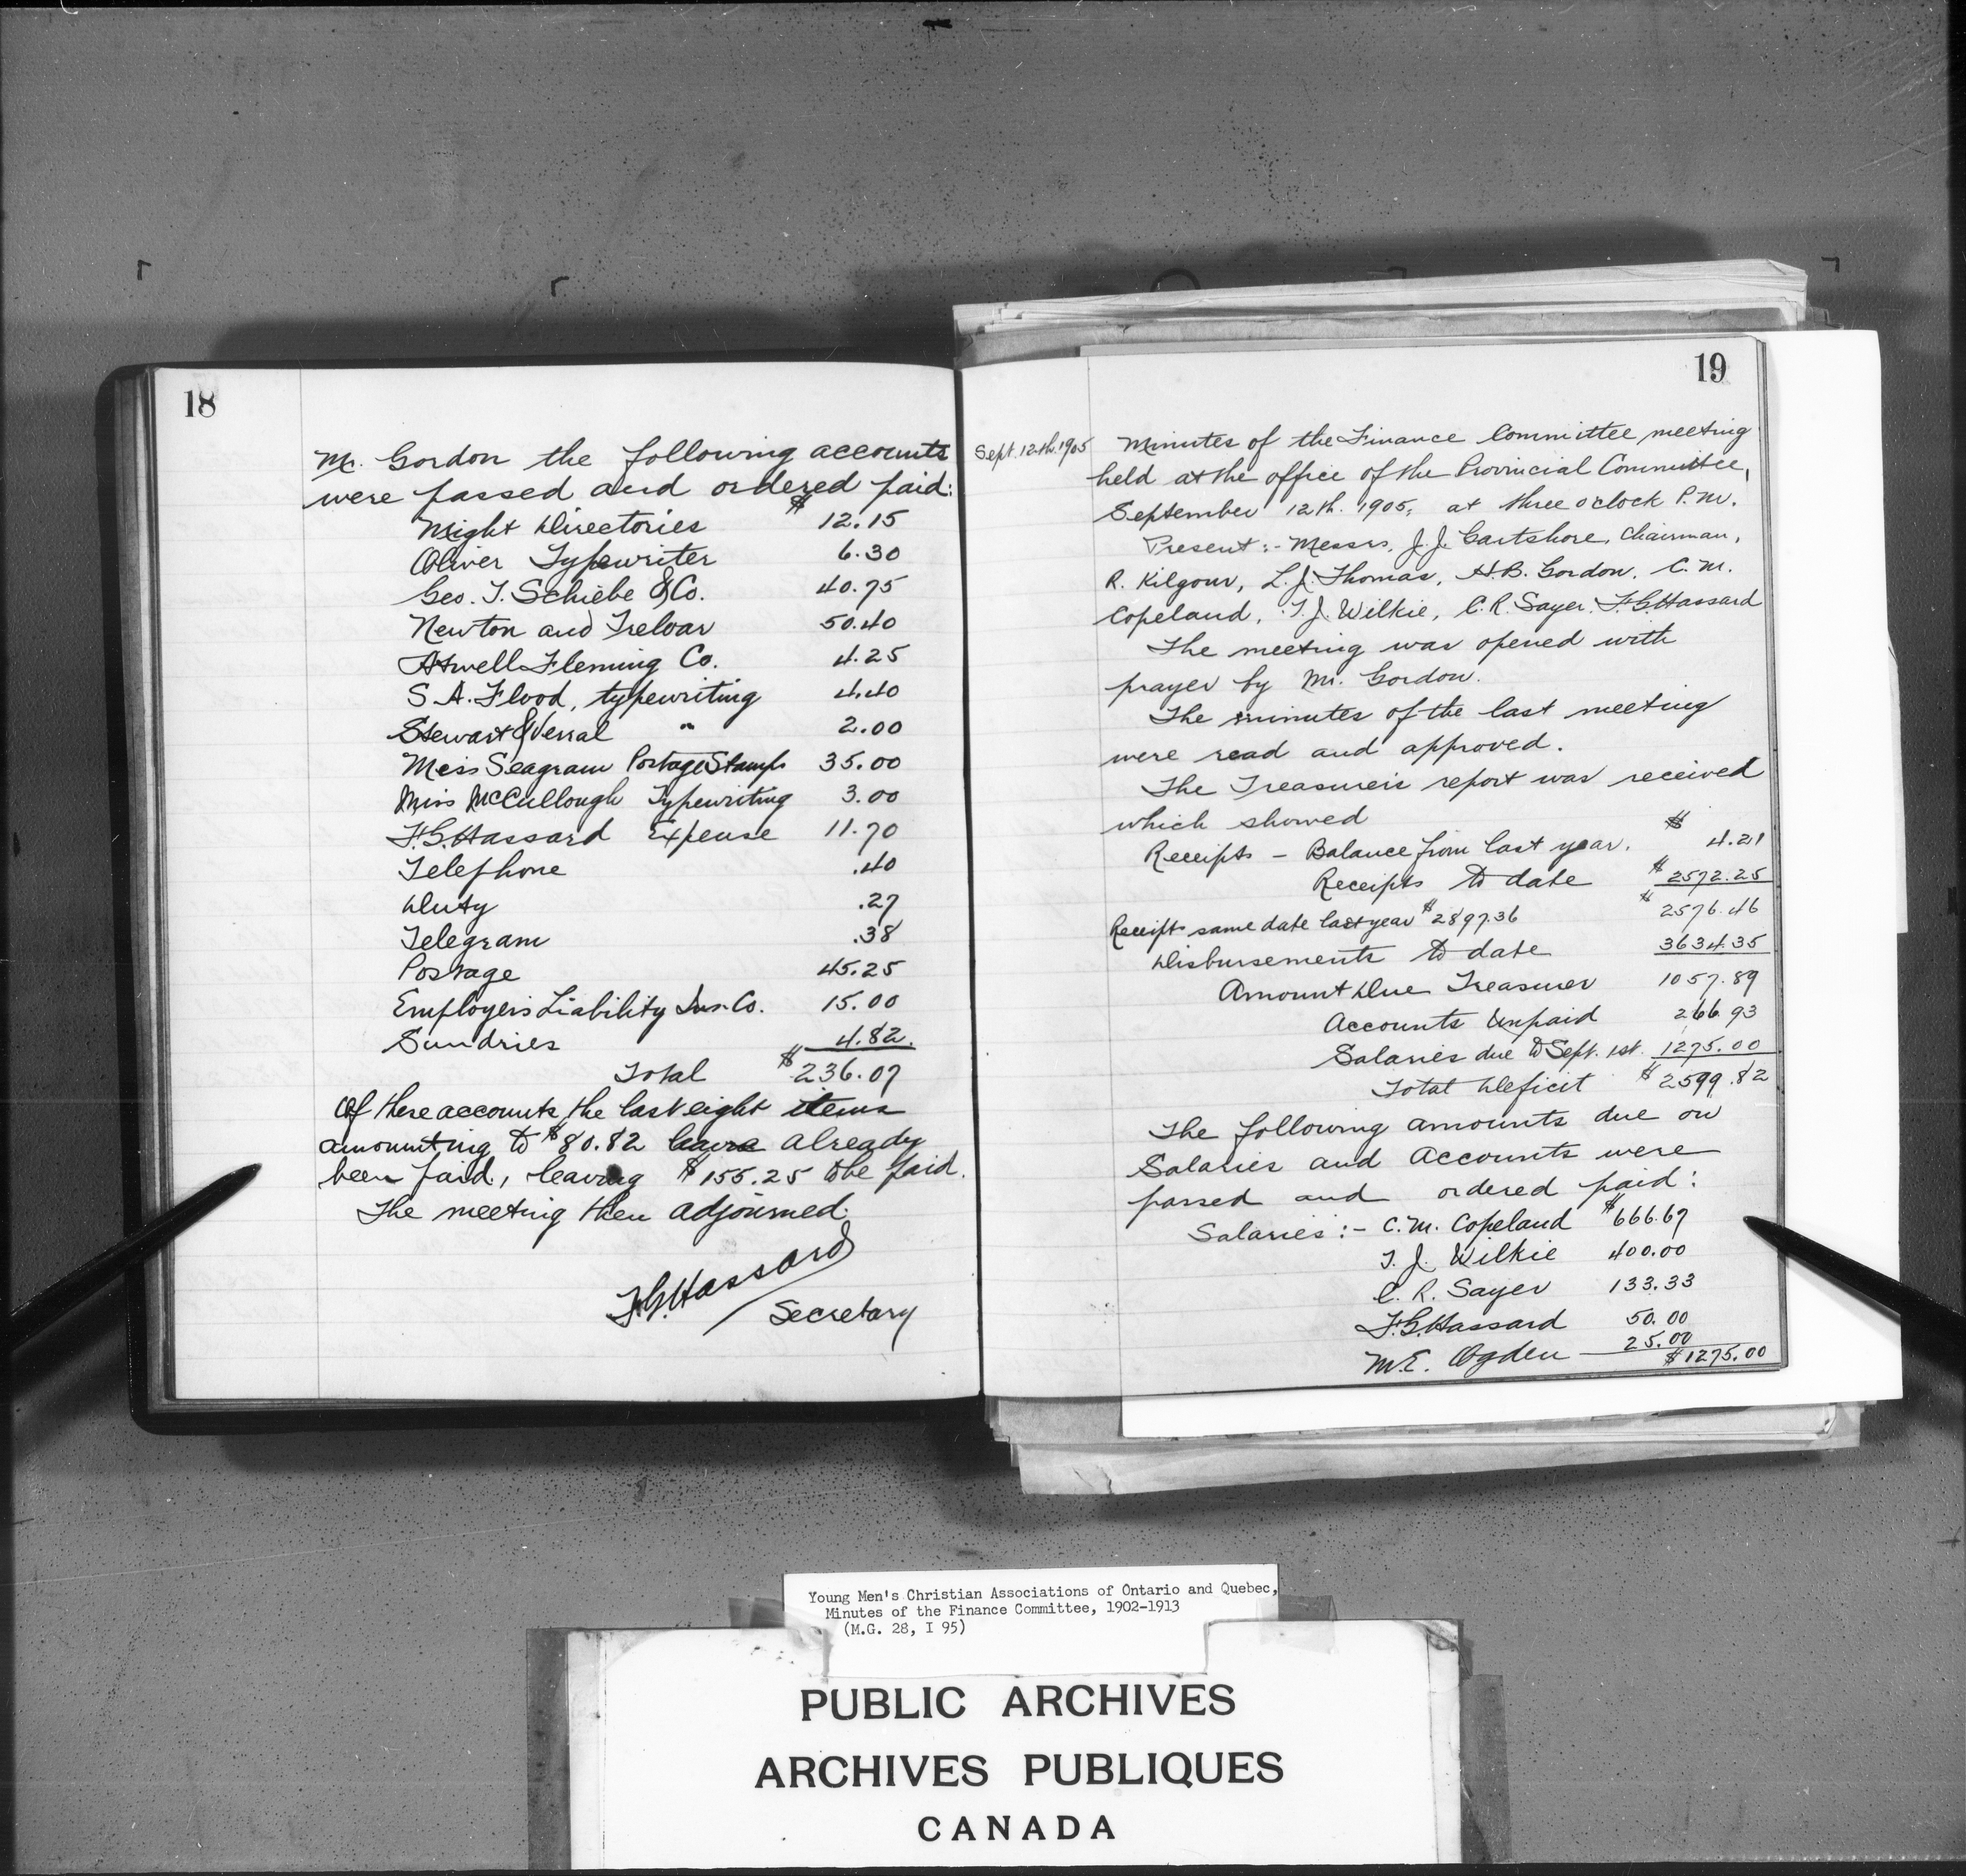 18
Mr. Gordon the following accounts
were passed and ordered paid:
Might Directories $12.15
Oliver Typewriter 6.30
Geo. T. Schiebe & Co. 40.75
Newton and Treloar 50.40
Atwell Fleming Co. 4.25
S. A. Flood, typewriting 4.40
Stewart & Verral " 2.00
Miss Seagram Postage Stamps 35.00
Miss McCullough Typewriting 3.00
F.G. Hassard Expense 11.70
Telephone .40
Duty .27
Telegram .38
Postage 45.25
Employers Liability Ins. Co. 15.00
Sundries 4.82
Total $236.07
Of these accounts the last eight items
amounting to $80.82 have already
been paid, leaving $155.25 to be paid.
The meeting then adjourned.
F.G. Hassard
Secretary
19
Sept. 12th. 1905
Minutes of the Finance Committee meeting
held at the office of the Provincial Committee,
September 12th. 1905, at three o'clock P.M.
Present:- Messrs. J.J. Gartshore, Chairman,
R. Kilgour, L.J. Thomas, H.B. Gordon, C.M.
Copeland, T.J. Wilkie, C.R. Sayer, F.G. Hassard
The meeting was opened with
prayer by Mr. Gordon.
The minutes of the last meeting
were read and approved.
The Treasurer's report was received
which showed
Receipts - Balance from last year. $ 4.21
Receipts to date $2572.25
$2576.46
Receipts same date last year $2897.36
Disbursements to date 3634.35
Amount Due Treasurer 1057.89
Accounts Unpaid 266.93
Salaries due to Sept. 1st. 1275.00
Total Deficit $2599.82
The following amounts due on
Salaries and Accounts were
passed and ordered paid:
Salaries:- C.M. Copeland $666.67
T. J. Wilkie 400.00
C. R. Sayer 133.33
F.G. Hassard 50.00
M.E. Ogden 25.00
$1275.00
Young Men's Christian Associations of Ontario and Quebec,
Minutes of the Finance Committee, 1902-1913
(M.G. 28, I 95)
PUBLIC ARCHIVES
ARCHIVES PUBLIQUES
CANADA